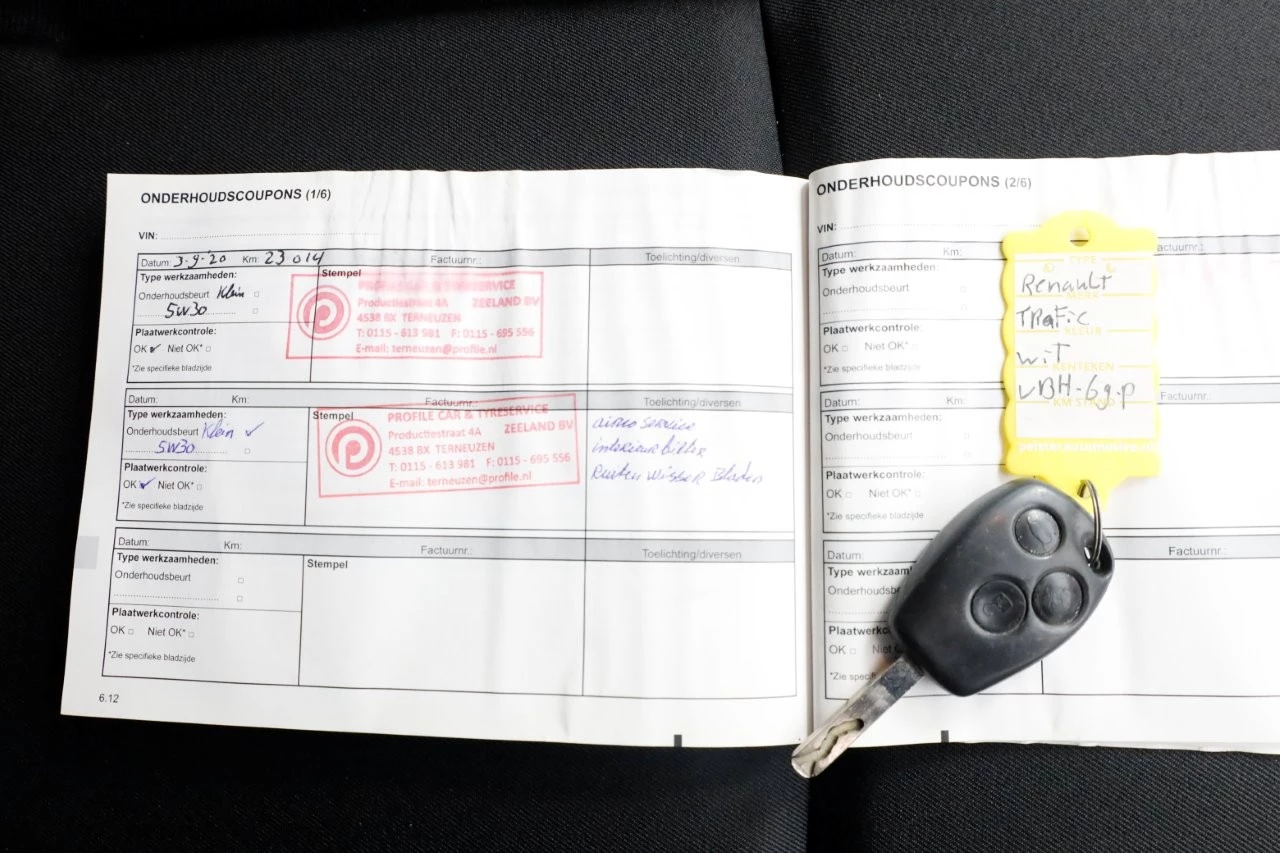 ONDERHOUDSCOUPONS (1/6)
VIN:
Datum: 3-9-'20 Km: 23 014 Factuurnr.: Toelichting/diversen
Type werkzaamheden:
Stempel
Onderhoudsbeurt Klein
5W30
Plaatwerkcontrole:
OK Niet OK*
*Zie specifieke bladzijde
PROFILE CAR & TYRESERVICE
Productiestraat 4A ZEELAND BV
4538 BX TERNEUZEN
T: 0115 - 613 981 F: 0115 - 695 556
E-mail: terneuzen@profile.nl
Datum: Km: Factuurnr.: Toelichting/diversen
Type werkzaamheden:
Stempel
Onderhoudsbeurt Klein
5W30
Plaatwerkcontrole:
OK Niet OK*
*Zie specifieke bladzijde
PROFILE CAR & TYRESERVICE
Productiestraat 4A ZEELAND BV
4538 BX TERNEUZEN
T: 0115 - 613 981 F: 0115 - 695 556
E-mail: terneuzen@profile.nl
airco service
interieurfilter
Ruiten Wisser Bladen
Datum: Km: Factuurnr.: Toelichting/diversen
Type werkzaamheden:
Stempel
Onderhoudsbeurt
Plaatwerkcontrole:
OK Niet OK*
*Zie specifieke bladzijde
6.12
ONDERHOUDSCOUPONS (2/6)
VIN:
Datum: Km:
Type werkzaamheden:
Onderhoudsbeurt
Plaatwerkcontrole:
OK Niet OK*
*Zie specifieke bladzijde
Datum: Km:
Type werkzaamheden:
Onderhoudsbeurt
Plaatwerkcontrole:
OK Niet OK*
*Zie specifieke bladzijde
Datum: Factuurnr.:
Type werkzaam
Onderhoudsb
Plaatwerkc
OK Niet
*Zie speci
TYPE
Renault
MERK
Trafic
KLEUR
wit
KENTEKEN
VBH-69-P
KM STAND